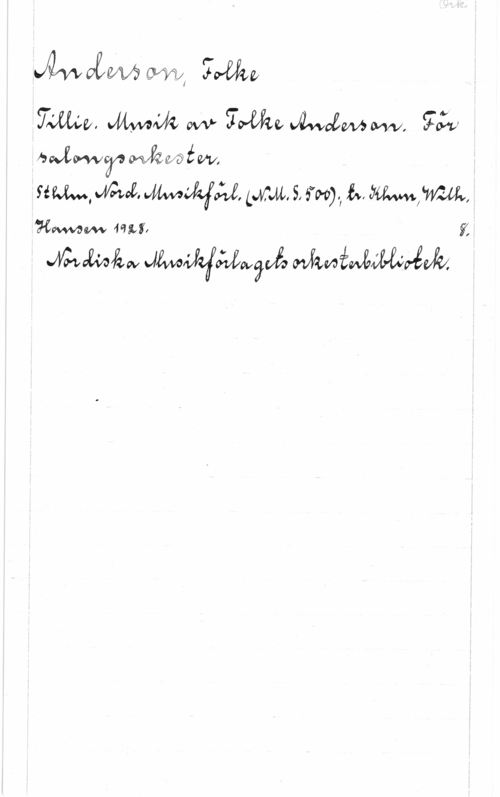 Ork
Anderson, Folke
Tillie. Musik av Folke Anderson. För
salongsorkester.
Sthlm, Nord. Musikförl. (N.M.S. 500); tr. Khvn, Wilh.
Hansen 1928. 8.
Nordiska Musikförlagets orkesterbibliotek.